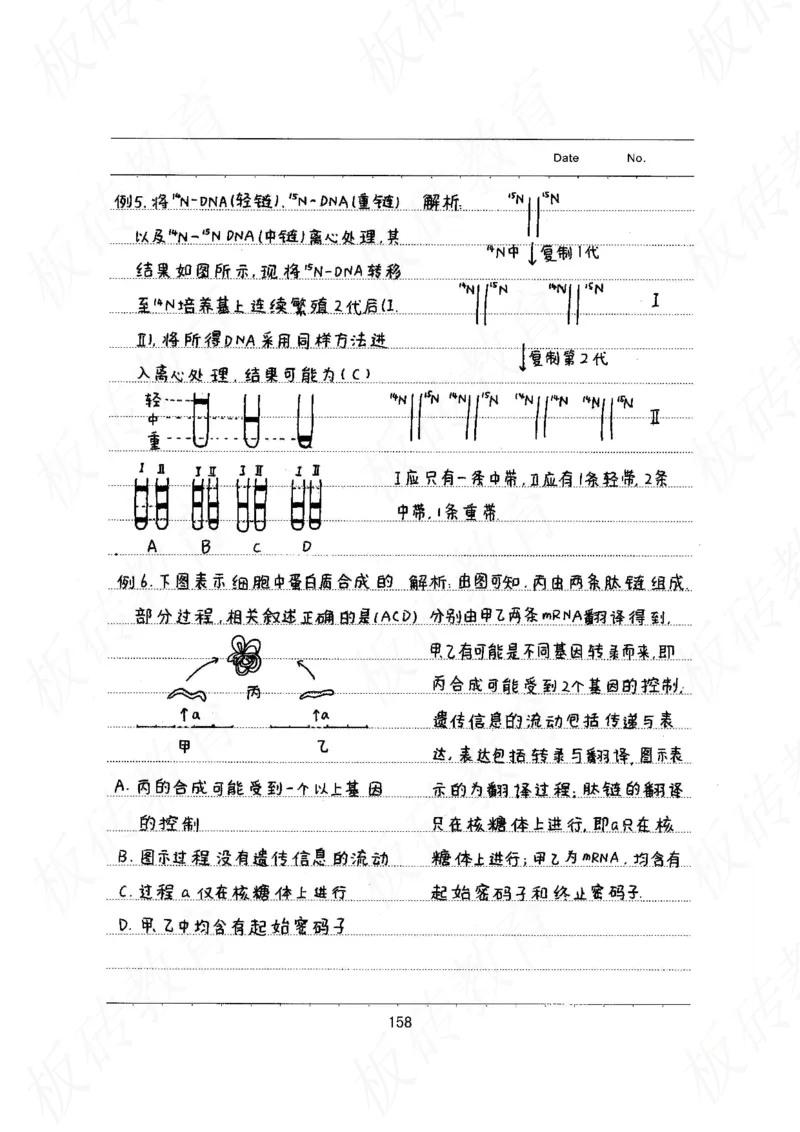 Date No.
例5.将¹⁴N-DNA(轻链).¹⁵N-DNA(重链)
以及¹⁴N-¹⁵N DNA(中链)离心处理,其
结果如图所示,现将¹⁵N-DNA转移
至¹⁴N培养基上连续繁殖2代后(I.
II),将所得DNA采用同样方法进
入离心处理,结果可能为(C)
轻
中
重
I II I II I II I II
A B C D
解析:
¹⁵N ¹⁵N
¹⁴N中 复制1代
¹⁴N ¹⁵N ¹⁴N ¹⁵N I
复制第2代
¹⁴N ¹⁵N ¹⁴N ¹⁵N ¹⁴N ¹⁴N ¹⁴N ¹⁵N II
I应只有一条中带,II应有1条轻带,2条
中带,1条重带.
例6.下图表示细胞中蛋白质合成的
部分过程,相关叙述正确的是(ACD)
丙
↑a ↑a
甲 乙
A.丙的合成可能受到一个以上基因
的控制
B.图示过程没有遗传信息的流动
C.过程a仅在核糖体上进行
D.甲、乙中均含有起始密码子
解析:由图可知.丙由两条肽链组成.
分别由甲乙两条mRNA翻译得到,
甲、乙有可能是不同基因转录而来,即
丙合成可能受到2个基因的控制;
遗传信息的流动包括传递与表
达,表达包括转录与翻译,图示表
示的为翻译过程;肽链的翻译
只在核糖体上进行,即a只在核
糖体上进行;甲乙为mRNA,均含有
起始密码子和终止密码子.
158
板砖教育